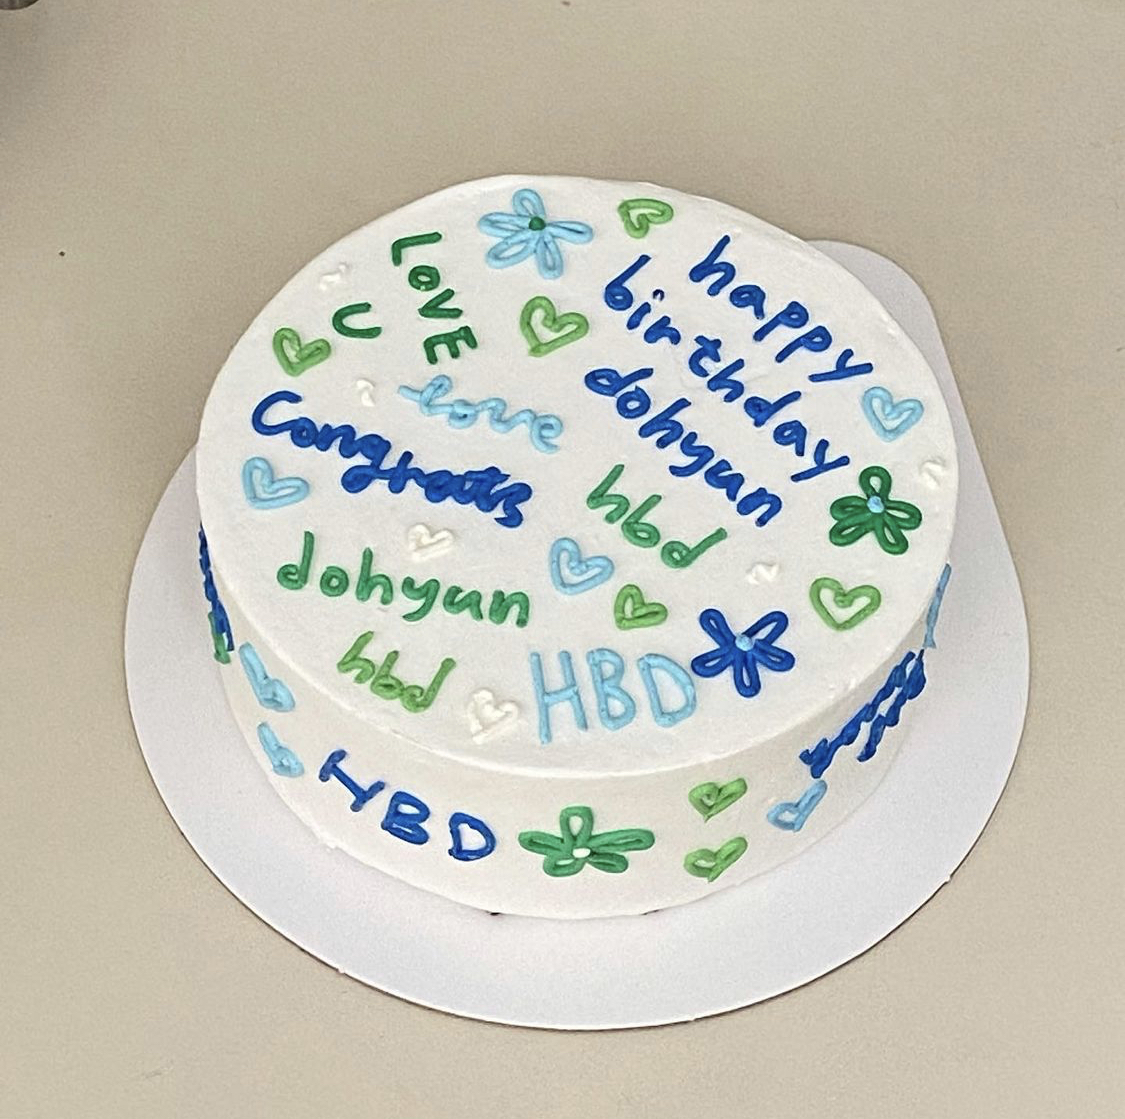 LOVE
U
happy
birthday
dohyun
love
Congrats
hbd
dohyun
hbd
HBD
HBD